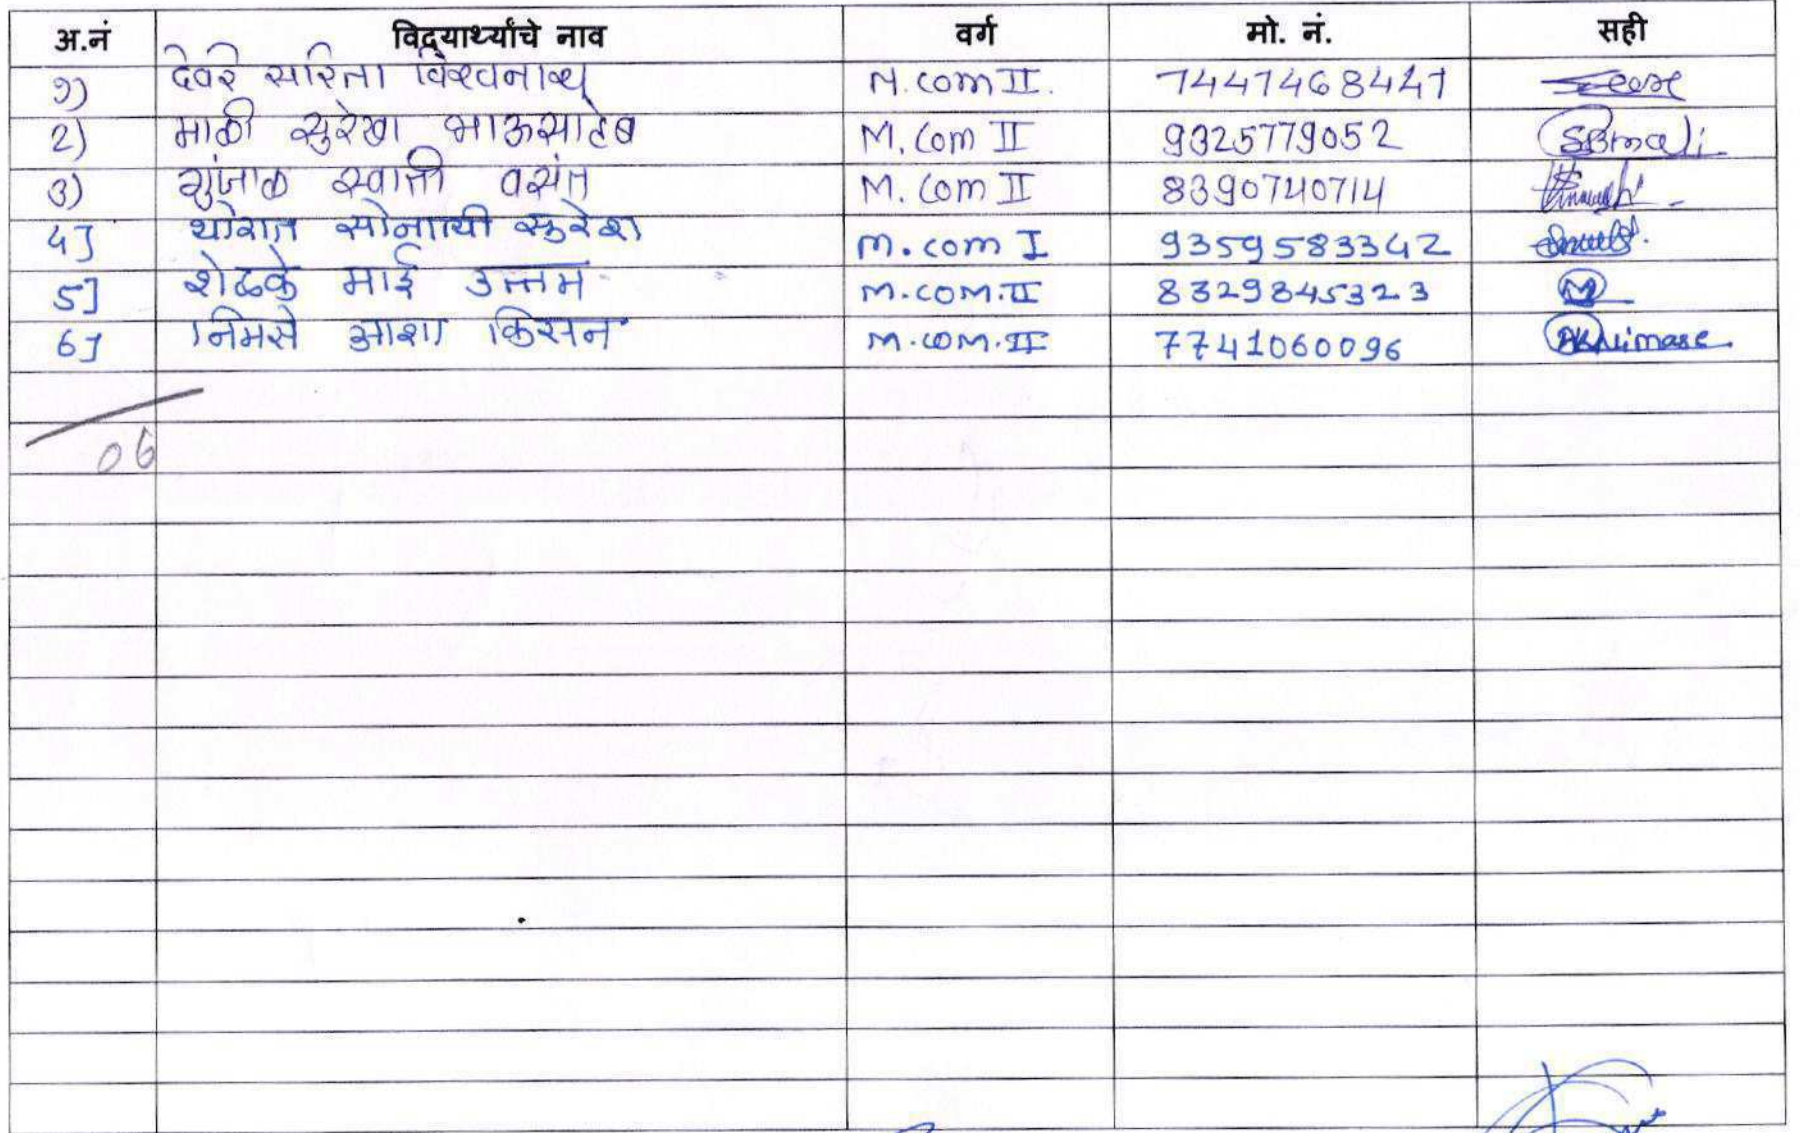 अ.नं विद्यार्थ्यांचे नाव वर्ग मो. नं. सही
१) देवरे सरिता विश्वनाथ M.com II. 7447468447
2) माळी सुरेखा भाऊसाहेब M.Com II 9325779052 SBmali
3) गुंजाळ स्वाती वसंत M.Com II 8390740714
4] थोरात सोनाली सुरेश M.com I 9359583342
5] शेळके माई उत्तम M.COM.II 8329845323 M
6] निमसे आशा किसन M.COM.II 7741060096 AKNimase
06